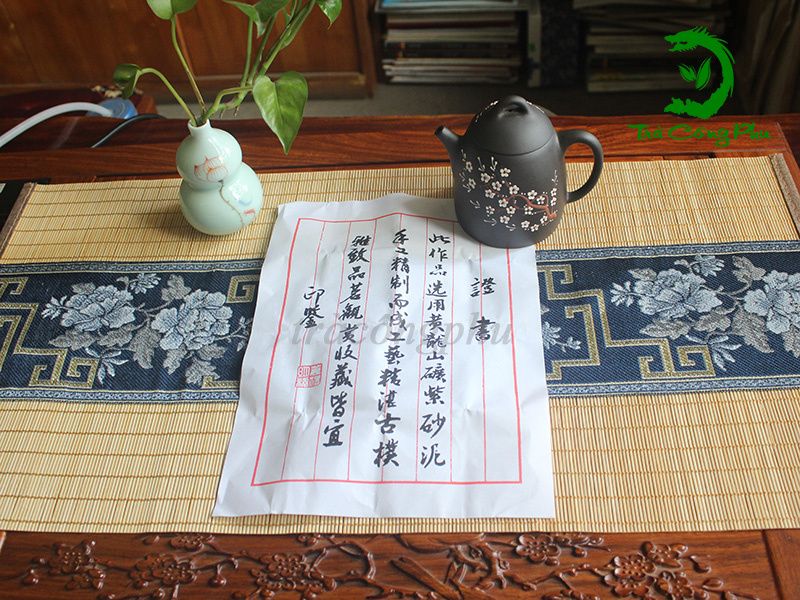 Trà Công Phu
證書
此作品选用黄龍山礦紫砂泥
手工精制而成工藝精湛古樸
雅致品茗觀赏收藏皆宜
印鑒
tràcôngphu
Trà Công Phu